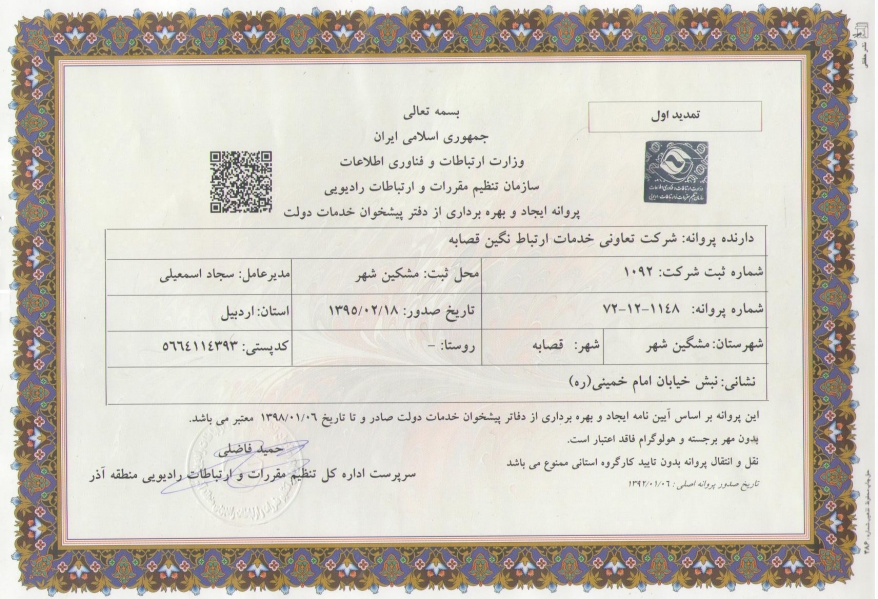 تمدید اول
بسمه تعالی
جمهوری اسلامی ایران
وزارت ارتباطات و فناوری اطلاعات
سازمان تنظیم مقررات و ارتباطات رادیویی
پروانه ایجاد و بهره برداری از دفتر پیشخوان خدمات دولت
دارنده پروانه: شرکت تعاونی خدمات ارتباط نگین قصابه
شماره ثبت شرکت: ۱۰۹۲ محل ثبت: مشکین شهر مدیرعامل: سجاد اسمعیلی
شماره پروانه: ۷۲-۱۲-۱۱٤۸ تاریخ صدور: ۱۳۹۵/۰۲/۱۸ استان: اردبیل
شهرستان: مشگین شهر شهر: قصابه روستا: - کدپستی: ۵٦٦٤۱۱٤۳۹۳
نشانی: نبش خیابان امام خمینی(ره)
این پروانه بر اساس آیین نامه ایجاد و بهره برداری از دفاتر پیشخوان خدمات دولت صادر و تا تاریخ ۱۳۹۸/۰۱/۰٦ معتبر می باشد.
بدون مهر برجسته و هولوگرام فاقد اعتبار است.
نقل و انتقال پروانه بدون تایید کارگروه استانی ممنوع می باشد
تاریخ صدور پروانه اصلی : ۱۳۹۲/۰۱/۰٦
حمید فاضلی
سرپرست اداره کل تنظیم مقررات و ارتباطات رادیویی منطقه آذر